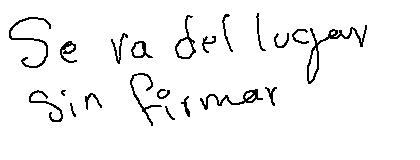 Se va del lugar
sin firmar